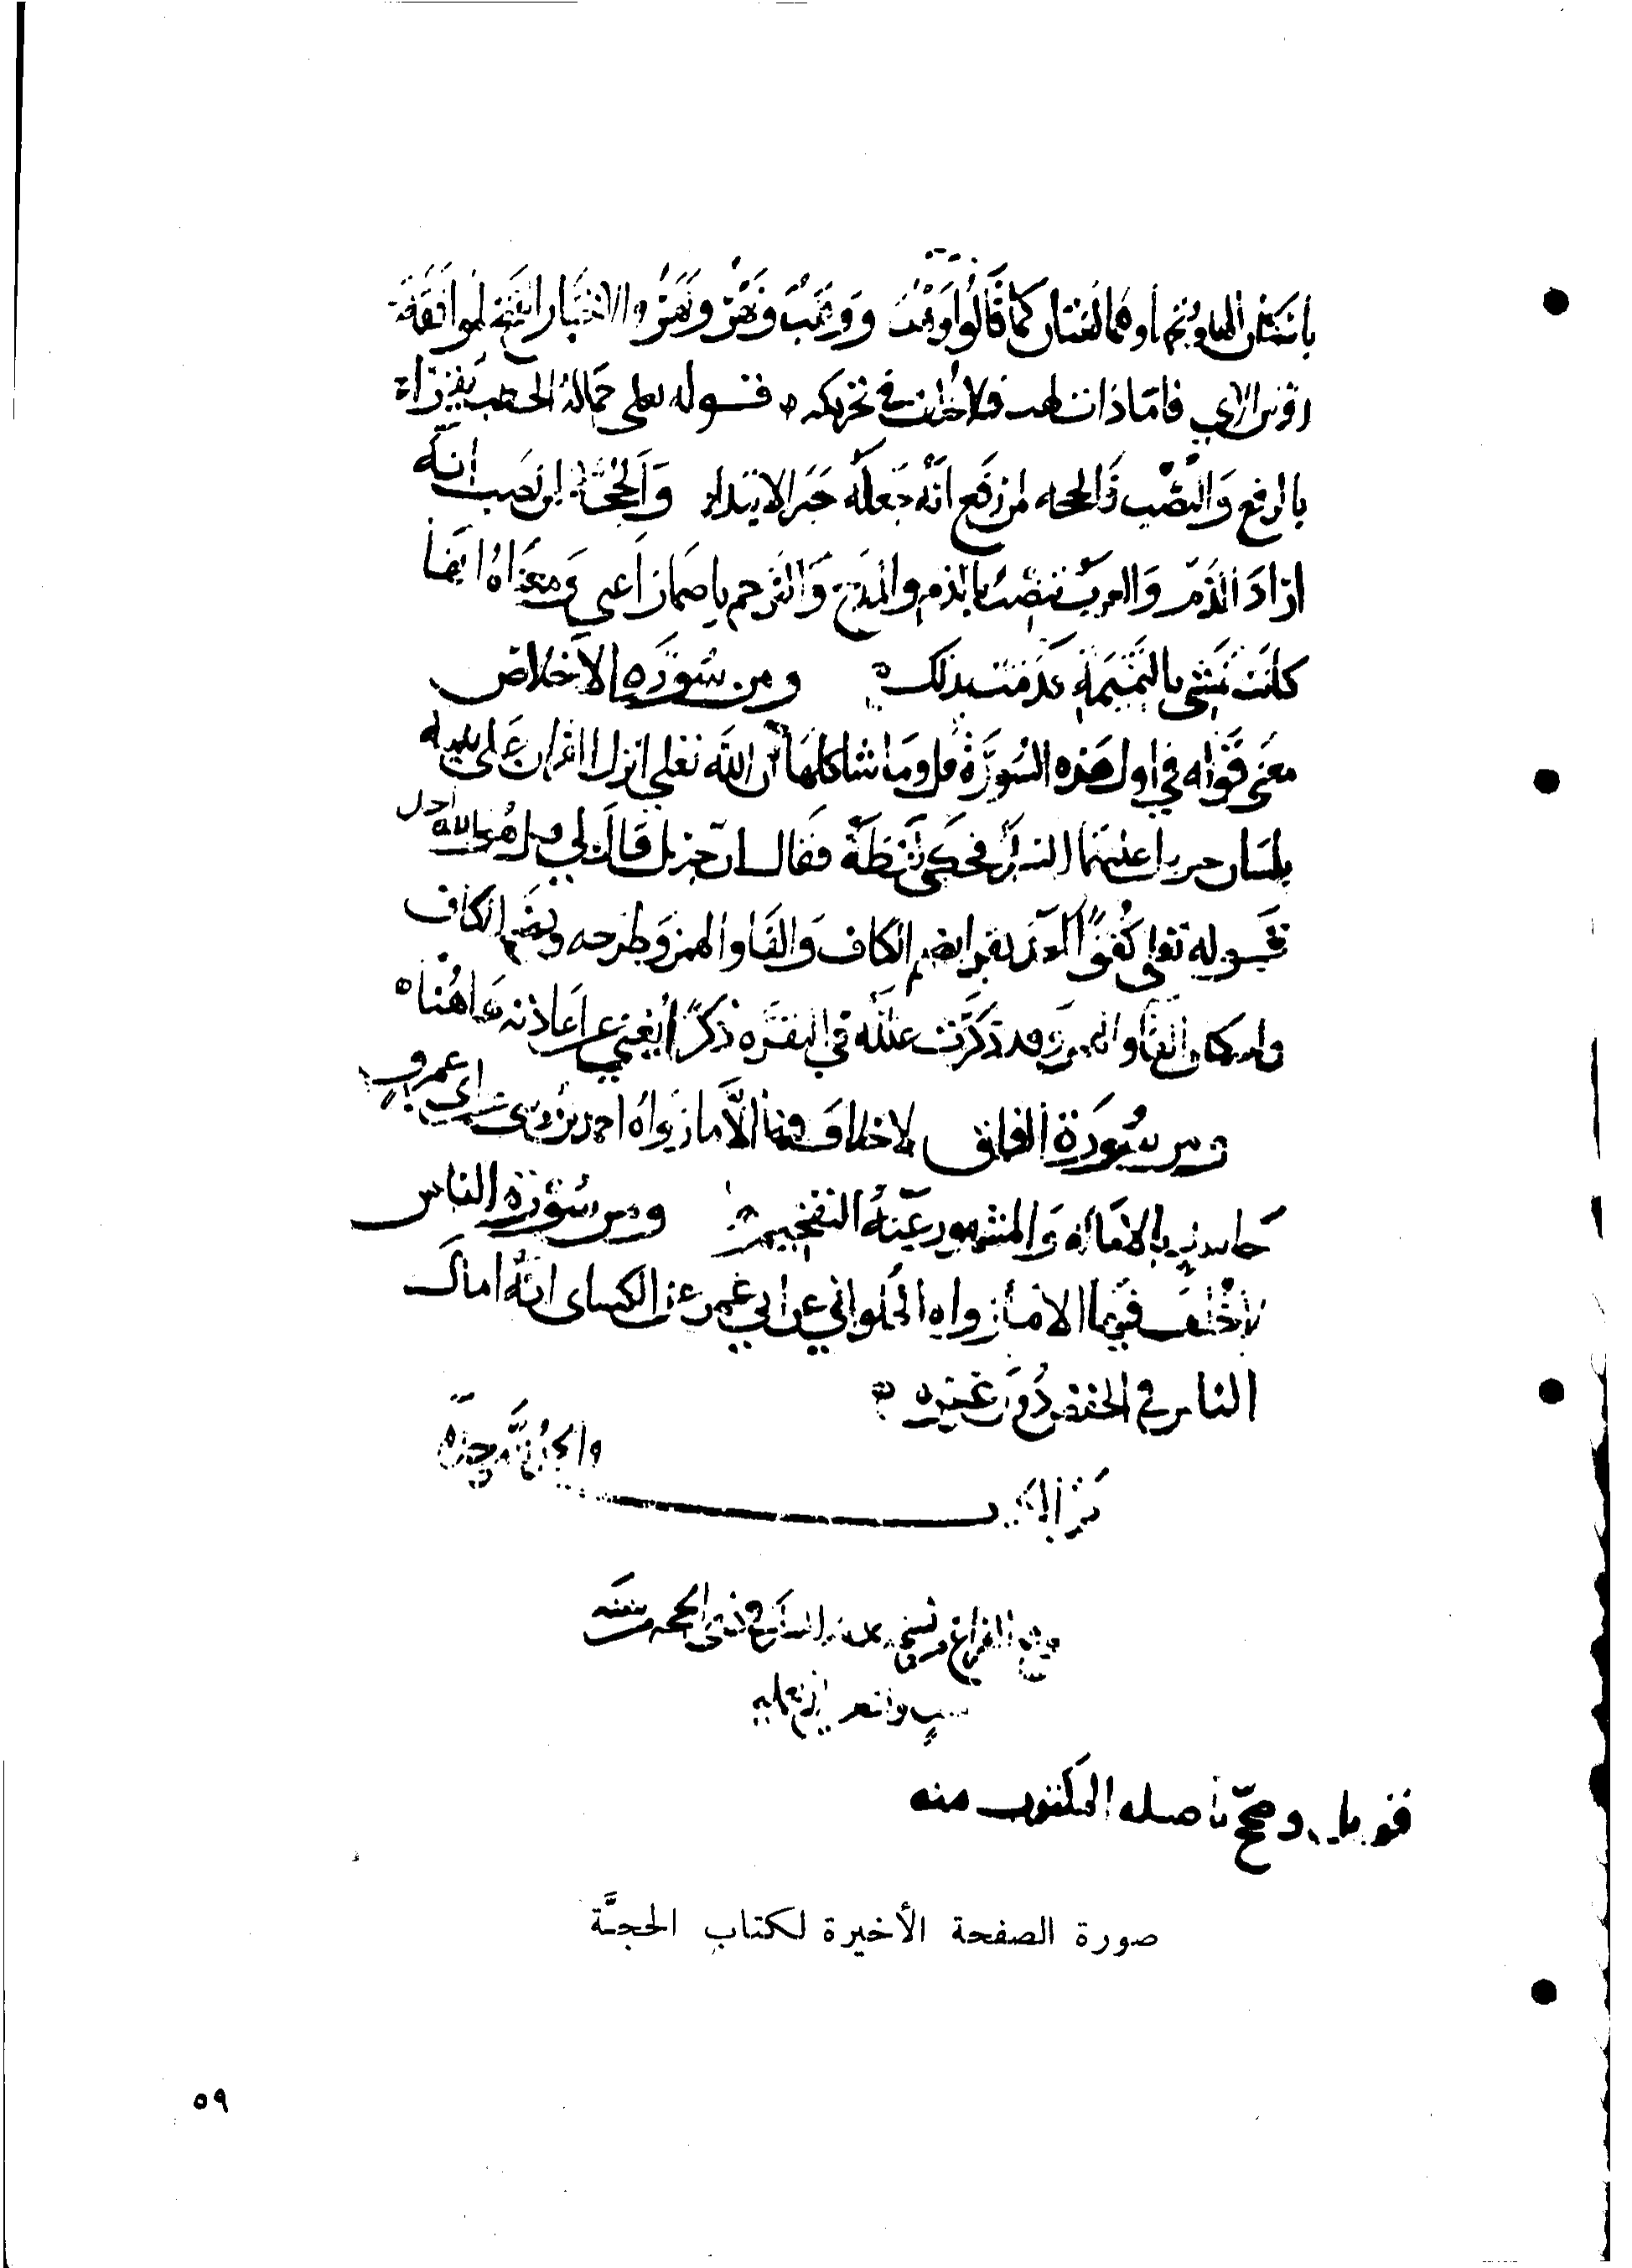 باسكان الهاء وفتحها وهما لغتان كما قالوا وَهْب وَوَهَب ونَهْر ونَهَر والاختيار الفتح لموافقة
رؤس الآي فاما ذات لهب فلا خلف في تحريكه قوله تعلى حمالة الحطب يقراء
بالرفع وَالنصْب فالحجه لمن رَفَع أنّه جَعلَه خَبَر الابتداء وَالحُجّة لمن نصَب انّه
ارَادَ الذّم وَالعرب تنصب بالذم والمدح وَالترحم باضمار اعني وَمعنَاهُ انها
كانَت تَمشي بالنَّمِيمَة فَذَمت بذلك ومن سُورَة الاخلاص
معنى قوله في اول هذه السُورَة قل وما شاكلها أن الله تعلى انزل القران عَلى نبيه
بلسَان جبريل عليهما السلام فحكى لفظَه فقال ان جبريل قالَ لي قل هُو الله احد
قوله تعلى كُفُوًا أحد يقرا بضم الكاف وَالفاء والهمز وَطرحه وبضم الكاف
واسكان الفاء والهمز وقد ذكَرت علله في البقَره ذكرًا يُغني عن اعَادته هَاهُنا
ومن سُورَة الفلق لا خلاف فيها الّا مَا رَواهُ احمد بن موسى عن ابى عمرو
حَاسد بالامَاله وَالمشهور عَنهُ التفخيم ومن سُورَة الناس
لا خُلفَ فيها الا مَا رواه الحلواني عن ابي عمر عن الكساى انهُ امالَ
الناس في الخفض دُونَ غيره
تم الكتاب والحمد لله وحده
وقع الفراغ من نسخه في ذى الحجه سنة
ست وتسعين واربعمايه
قوبل وصحّ باصله المكتوب منه
صورة الصفحة الأخيرة لكتاب الحجَّة
٥٩